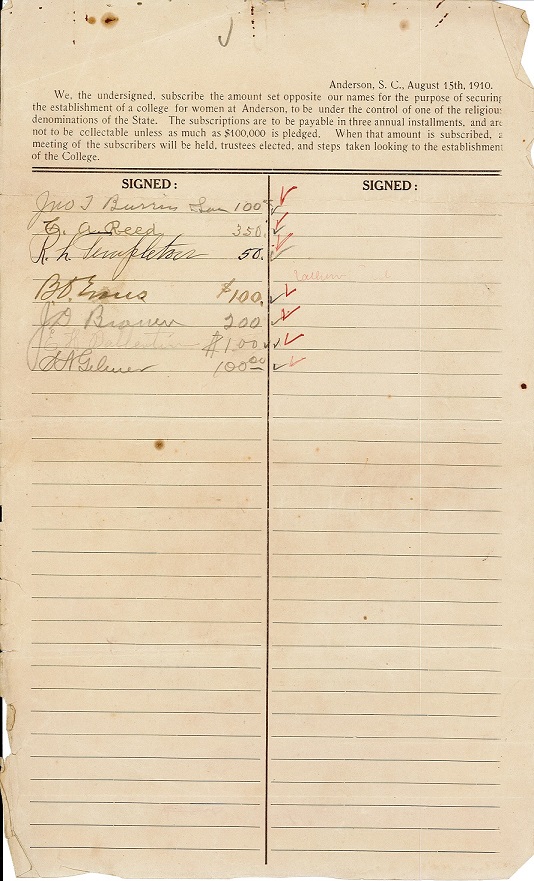 Anderson, S. C., August 15th, 1910.
We, the undersigned, subscribe the amount set opposite our names for the purpose of securing
the establishment of a college for women at Anderson, to be under the control of one of the religious
denominations of the State. The subscriptions are to be payable in three annual installments, and are
not to be collectable unless as much as $100,000 is pledged. When that amount is subscribed, a
meeting of the subscribers will be held, trustees elected, and steps taken looking to the establishment
of the College.
SIGNED: SIGNED:
Jno T Burriss 100
C. A. Reed 350.
R. L. Templeton 50.
B. D. Evans $100.
Brown 200
$100
Gelmer 100.00